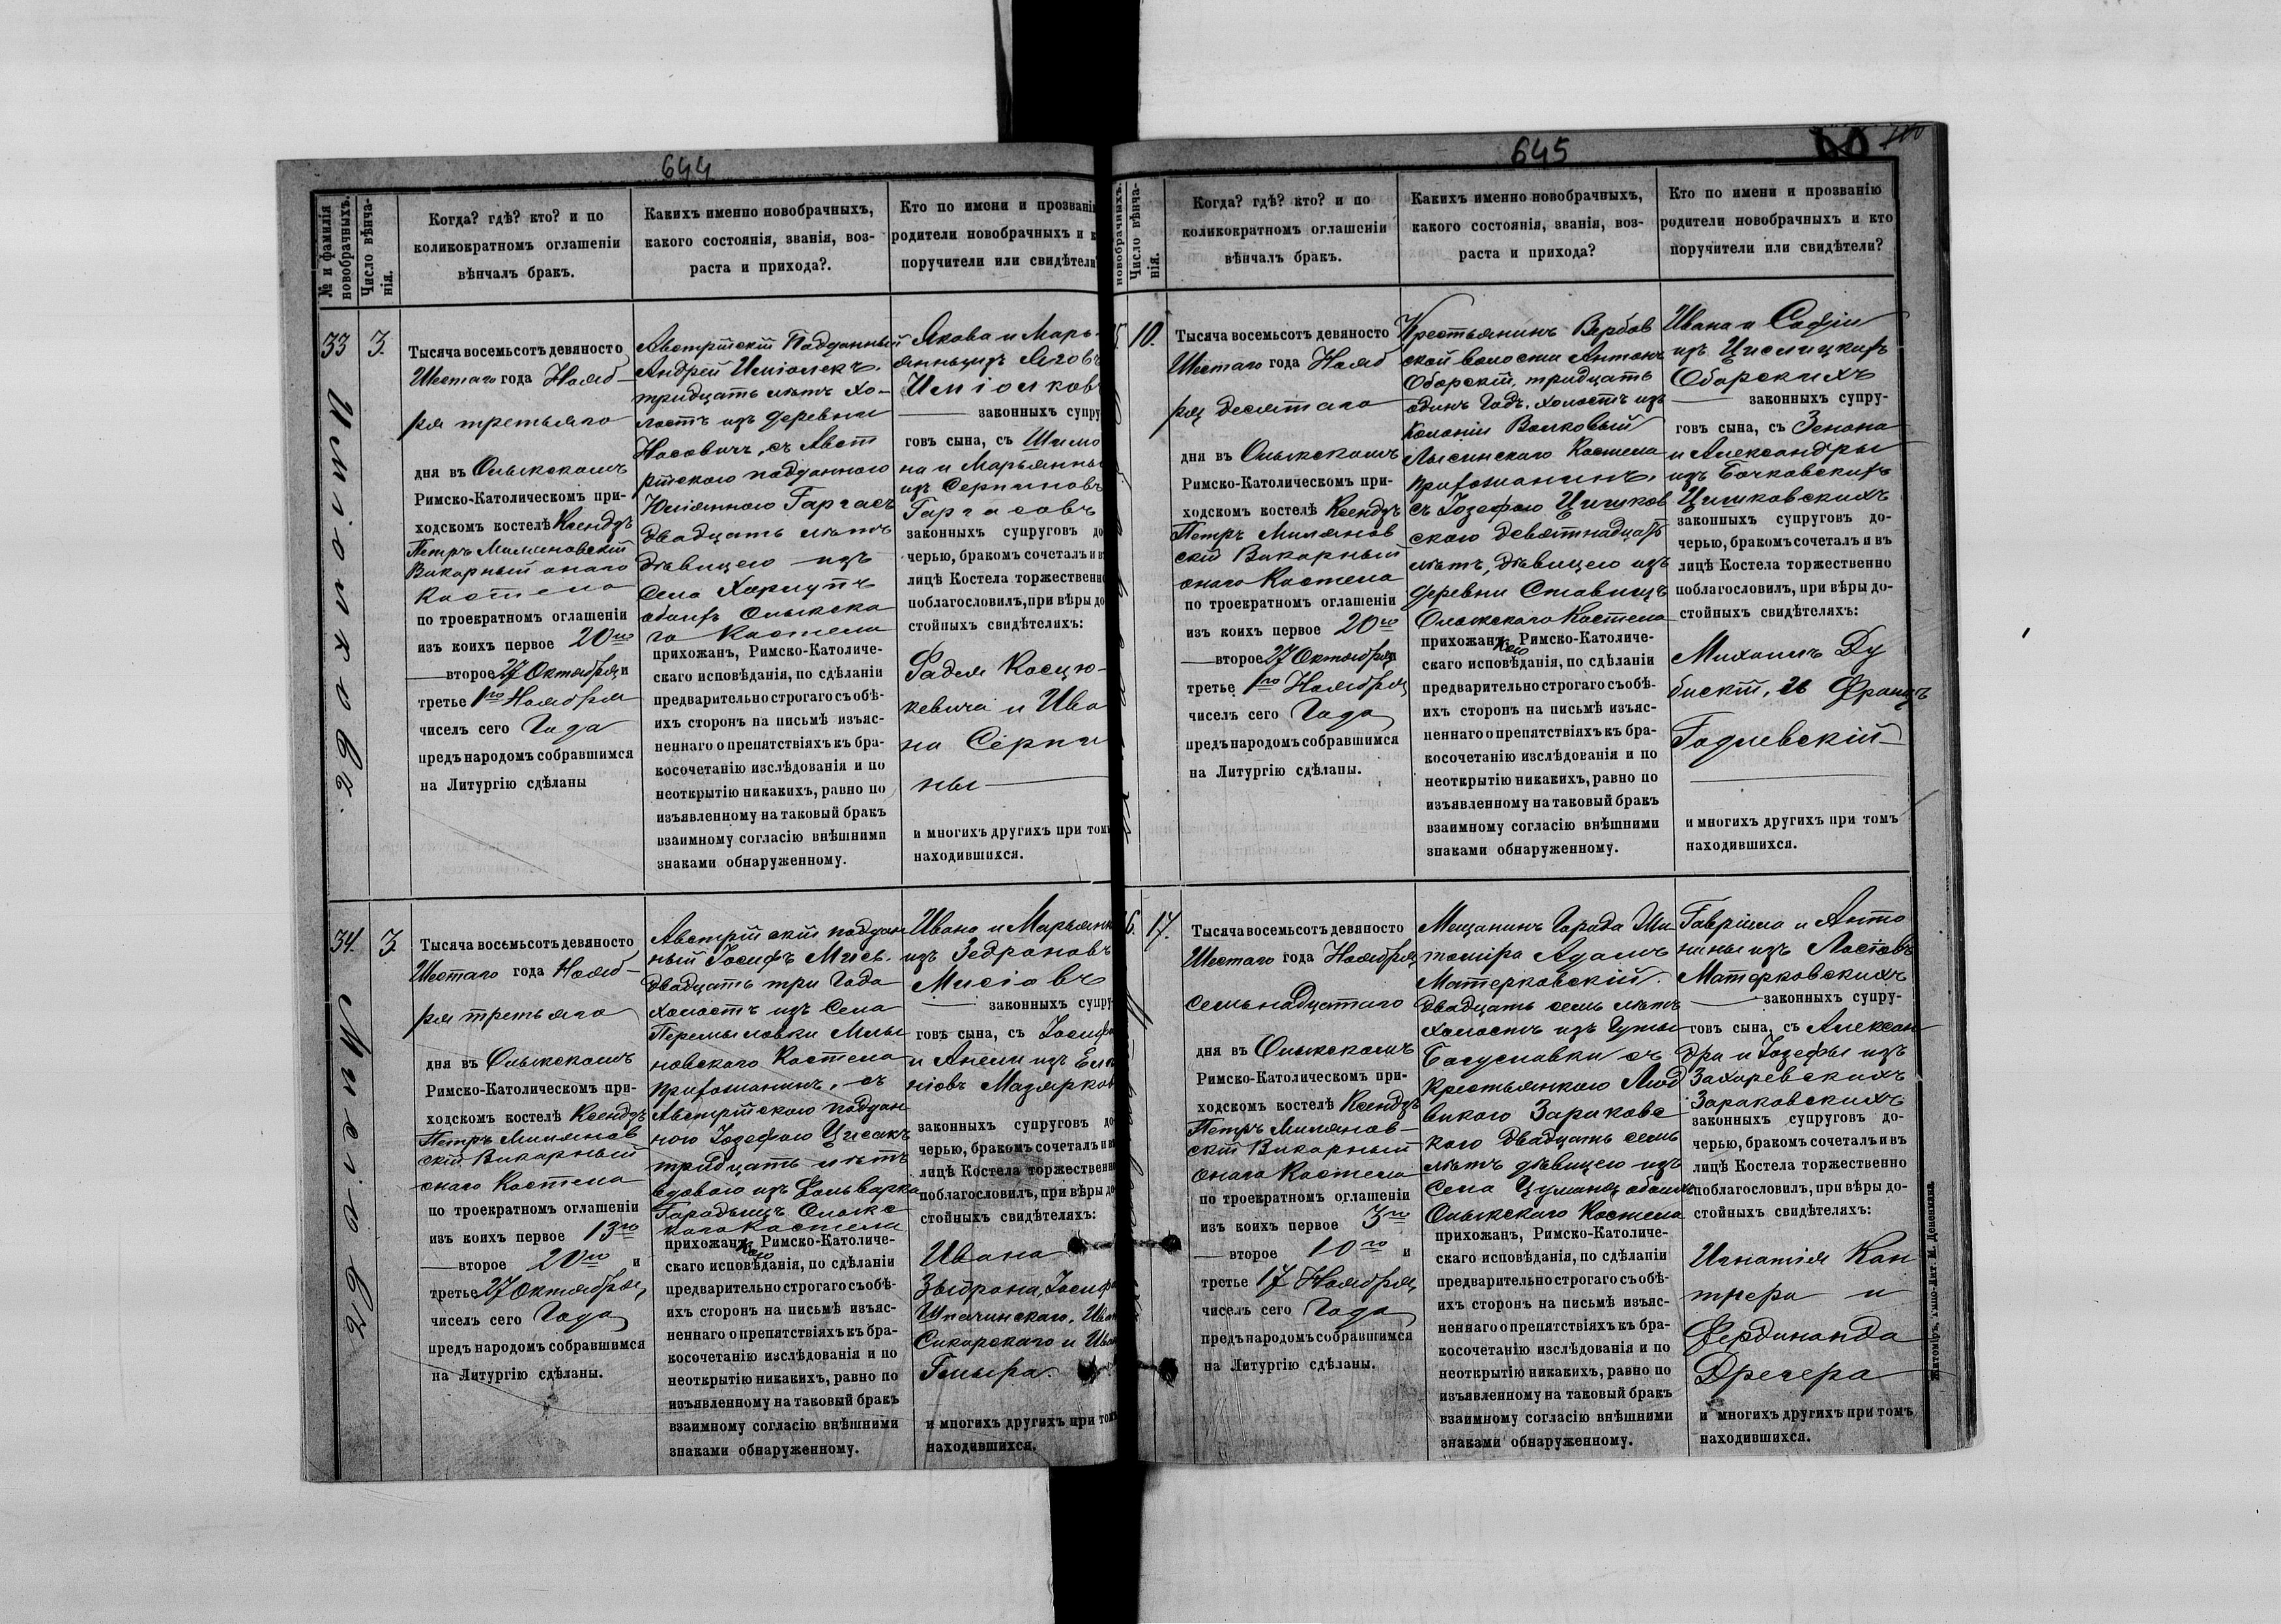 644
№ и фамилія новобрачныхъ.
Число вѣнчанія.
Когда? гдѣ? кто? и по
коликократномъ оглашеніи
вѣнчалъ бракъ.
Какихъ именно новобрачныхъ,
какого состоянія, званія, воз-
раста и прихода?.
Кто по имени и прозвані
родители новобрачныхъ и к
поручители или свидѣтели
33
3.
Тысяча восемьсотъ девяносто
Шестаго года Нояб-
ря третьяго
дня въ Олыкскомъ
Римско-Католическомъ при-
ходскомъ костелѣ Ксендзъ
Петръ Миляновскій
Викарный онаго
Костела
по троекратномъ оглашеніи
изъ коихъ первое 20го
второе 27 Октября и
третье 1го Ноября
чиселъ сего Года
предъ народомъ собравшимся
на Литургію сдѣланы
Австрійскій Подданный
Андрей
тридцать лѣтъ хо-
лостъ изъ деревни
Носовичъ, съ Авст
рійскою подданною
Юліянною Гаргасъ
двадцать лѣтъ
дѣвицею изъ
Села Хорлупъ
обоихъ Олыкска
го Костела
прихожан, Римско-Католиче-
скаго исповѣданія, по сдѣланіи
предварительно строгаго съ обѣ-
ихъ сторонъ на письмѣ изъяс-
неннаго о препятствіяхъ къ бра-
косочетанію изслѣдованія и по
неоткрытію никакихъ, равно по
изъявленному на таковый бракъ
взаимному согласію внѣшними
знаками обнаруженному.
Якова и Марь-
янны изъ
законныхъ супру
говъ сына, съ Шимо
на и Марьянны
изъ Серпиновъ
Гаргасовъ
законныхъ супруговъ до
черью, бракомъ сочеталъ и въ
лицѣ Костела торжественно
поблагословилъ, при вѣры до
стойныхъ свидѣтеляхъ:
Фадея Косцю-
кевича и Ива
на Серпи
ны
и многихъ другихъ при томъ
находившихся.
34.
3
Тысяча восемьсотъ девяносто
Шестаго года Нояб-
ря третьяго
дня въ Олыкскомъ
Римско-Католическомъ при-
ходскомъ костелѣ Ксендзъ
Петръ Милянов
скій Викарный
онаго Костела
по троекратномъ оглашеніи
изъ коихъ первое 13го
второе 20го и
третье 27 Октября,
чиселъ сего Года
предъ народомъ собравшимся
на Литургію сдѣланы.
Австрійскій поддан
ный Іосифъ Мись.
двадцать три Года
холостъ изъ Села
Перемыловки Млы
новскаго Костела
прихожанинъ, съ
Австрійскою поддан
ною Іозефою Цисакъ
тридцать лѣтъ
вдовою изъ Фольварка
Городыщъ Олыкс
каго Костела
прихожан кою, Римско-Католиче-
скаго исповѣданія, по сдѣланіи
предварительно строгаго съ обѣ-
ихъ сторонъ на письмѣ изъяс-
неннаго о препятствіяхъ къ бра-
косочетанію изслѣдованія и по
неоткрытію никакихъ, равно по
изъявленному на таковый бракъ
взаимному согласію внѣшними
знаками обнаруженному.
Ивана и Марьянн
изъ Зедроновъ
Мисіовъ
законныхъ супру
говъ сына, съ Іосифа
и Анели изъ
законныхъ супруговъ до
черью, бракомъ сочеталъ и въ
лицѣ Костела торжественно
поблагословилъ, при вѣры до
стойныхъ свидѣтеляхъ:
Ивана
Зыдрона, Іосифа
Сикорскаго и
и многихъ другихъ при томъ
находившихся.
645
новобрачныхъ.
Число вѣнчанія.
Когда? гдѣ? кто? и по
коликократномъ оглашеніи
вѣнчалъ бракъ.
Какихъ именно новобрачныхъ,
какого состоянія, званія, воз-
раста и прихода?
Кто по имени и прозванію
родители новобрачныхъ и кто
поручители или свидѣтели?
10.
Тысяча восемьсотъ девяносто
Шестаго года Нояб
ря десятаго
дня въ Олыкскомъ
Римско-Католическомъ при-
ходскомъ костелѣ Ксендзъ
Петръ Милянов
скій Викарный
онаго Костела
по троекратномъ оглашеніи
изъ коихъ первое 20го
второе 27 Октября
третье 1го Ноября
чиселъ сего Года
предъ народомъ собравшимся
на Литургію сдѣланы.
Крестьянинъ Вербов
ской волости Антонъ
Оборскій, тридцать
одинъ Годъ, холостъ изъ
Колоніи Волковый
Лысинскаго Костела
прихожанинъ,
съ Іозефою Цишков
скою девятнадцать
лѣтъ, дѣвицею изъ
деревни Ставищъ
Олыкскаго Костела
прихожан кою, Римско-Католиче-
скаго исповѣданія, по сдѣланіи
предварительно строгаго съ обѣ-
ихъ сторонъ на письмѣ изъяс-
неннаго о препятствіяхъ къ бра-
косочетанію изслѣдованія и по
неоткрытію никакихъ, равно по
изъявленному на таковый бракъ
взаимному согласію внѣшними
знаками обнаруженному.
Ивана и Софіи
изъ Цислицкихъ
Оборскихъ
законныхъ супру-
говъ сына, съ Зенона
и Александры
изъ Бочковскихъ
Цишковскихъ
законныхъ супруговъ до-
черью, бракомъ сочеталъ и въ
лицѣ Костела торжественно
поблагословилъ, при вѣры до-
стойныхъ свидѣтеляхъ:
Михаилъ Ду
бискій, и Францъ
Годлевскій
и многихъ другихъ при томъ
находившихся.
17.
Тысяча восемьсотъ девяносто
Шестаго года Ноября,
семьнадцатаго
дня въ Олыкскомъ
Римско-Католическомъ при-
ходскомъ костелѣ Ксендзъ
Петръ Милянов-
скій Викарный
онаго Костела
по троекратномъ оглашеніи
изъ коихъ первое 3го
второе 10го и
третье 17 Ноября,
чиселъ сего Года
предъ народомъ собравшимся
на Литургію сдѣланы.
Мещанинъ Города Жи-
томіра Адамъ
Матерковскій.
двадцать семь лѣтъ
холостъ изъ Гуты
Богуславки съ
Крестьянкою Люд
викою Зараковс
кою двадцать семь
лѣтъ дѣвицею изъ
Села Цумань обоихъ
Олыкскаго Костела
прихожан, Римско-Католиче-
скаго исповѣданія, по сдѣланіи
предварительно строгаго съ обѣ-
ихъ сторонъ на письмѣ изъяс-
неннаго о препятствіяхъ къ бра-
косочетанію изслѣдованія и по
неоткрытію никакихъ, равно по
изъявленному на таковый бракъ
взаимному согласію внѣшними
знаками обнаруженному.
Гавріила и Анто
нины изъ
Матерковскихъ
законныхъ супру-
говъ сына, съ Алексан
дра и Іозефы изъ
Захаревскихъ
Зараковскихъ
законныхъ супруговъ до-
черью, бракомъ сочеталъ и въ
лицѣ Костела торжественно
поблагословилъ, при вѣры до-
стойныхъ свидѣтеляхъ:
Игнатія Кан
тнера и
Фердинанда
Дрегера
и многихъ другихъ при томъ
находившихся.
Житоміръ, Типо-Лит. М. Дененмана.